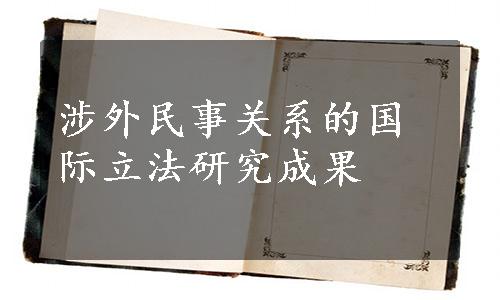 涉外民事关系的国
际立法研究成果